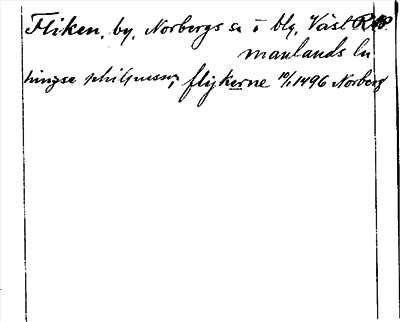 Fliken, by, Norbergs sn o blg, Väst RAP.
manlands ln
hinzse philpusson, flykerne 10/1 1496 Norberg